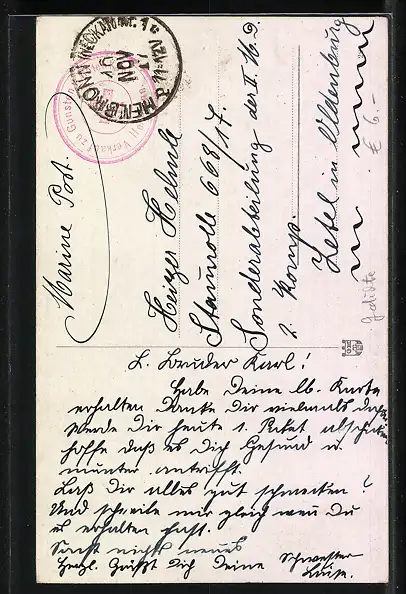 Marine Post.
Heizer Helmle
Stammrolle 668/17.
Sonderabteilung der II. W. D.
2. Komp.
Zetel in Oldenburg
HEILBRONN (NECKAR) Nr. 1
NOV
17
Verkauf zu Gunsten
€ 6.-
L. Bruder Karl!
Habe Deine lb. Karte
erhalten Danke Dir vielmals dafür
werde Dir heute 1. Paket abschicken
hoffe daß es Dich Gesund u.
munter antrifft.
Laß Dir alles gut schmecken!
Und schreibe mir gleich wenn Du
es erhalten hast.
Sonst nichts neues
Herzl. Grüßt Dich Deine Schwester
Luise.